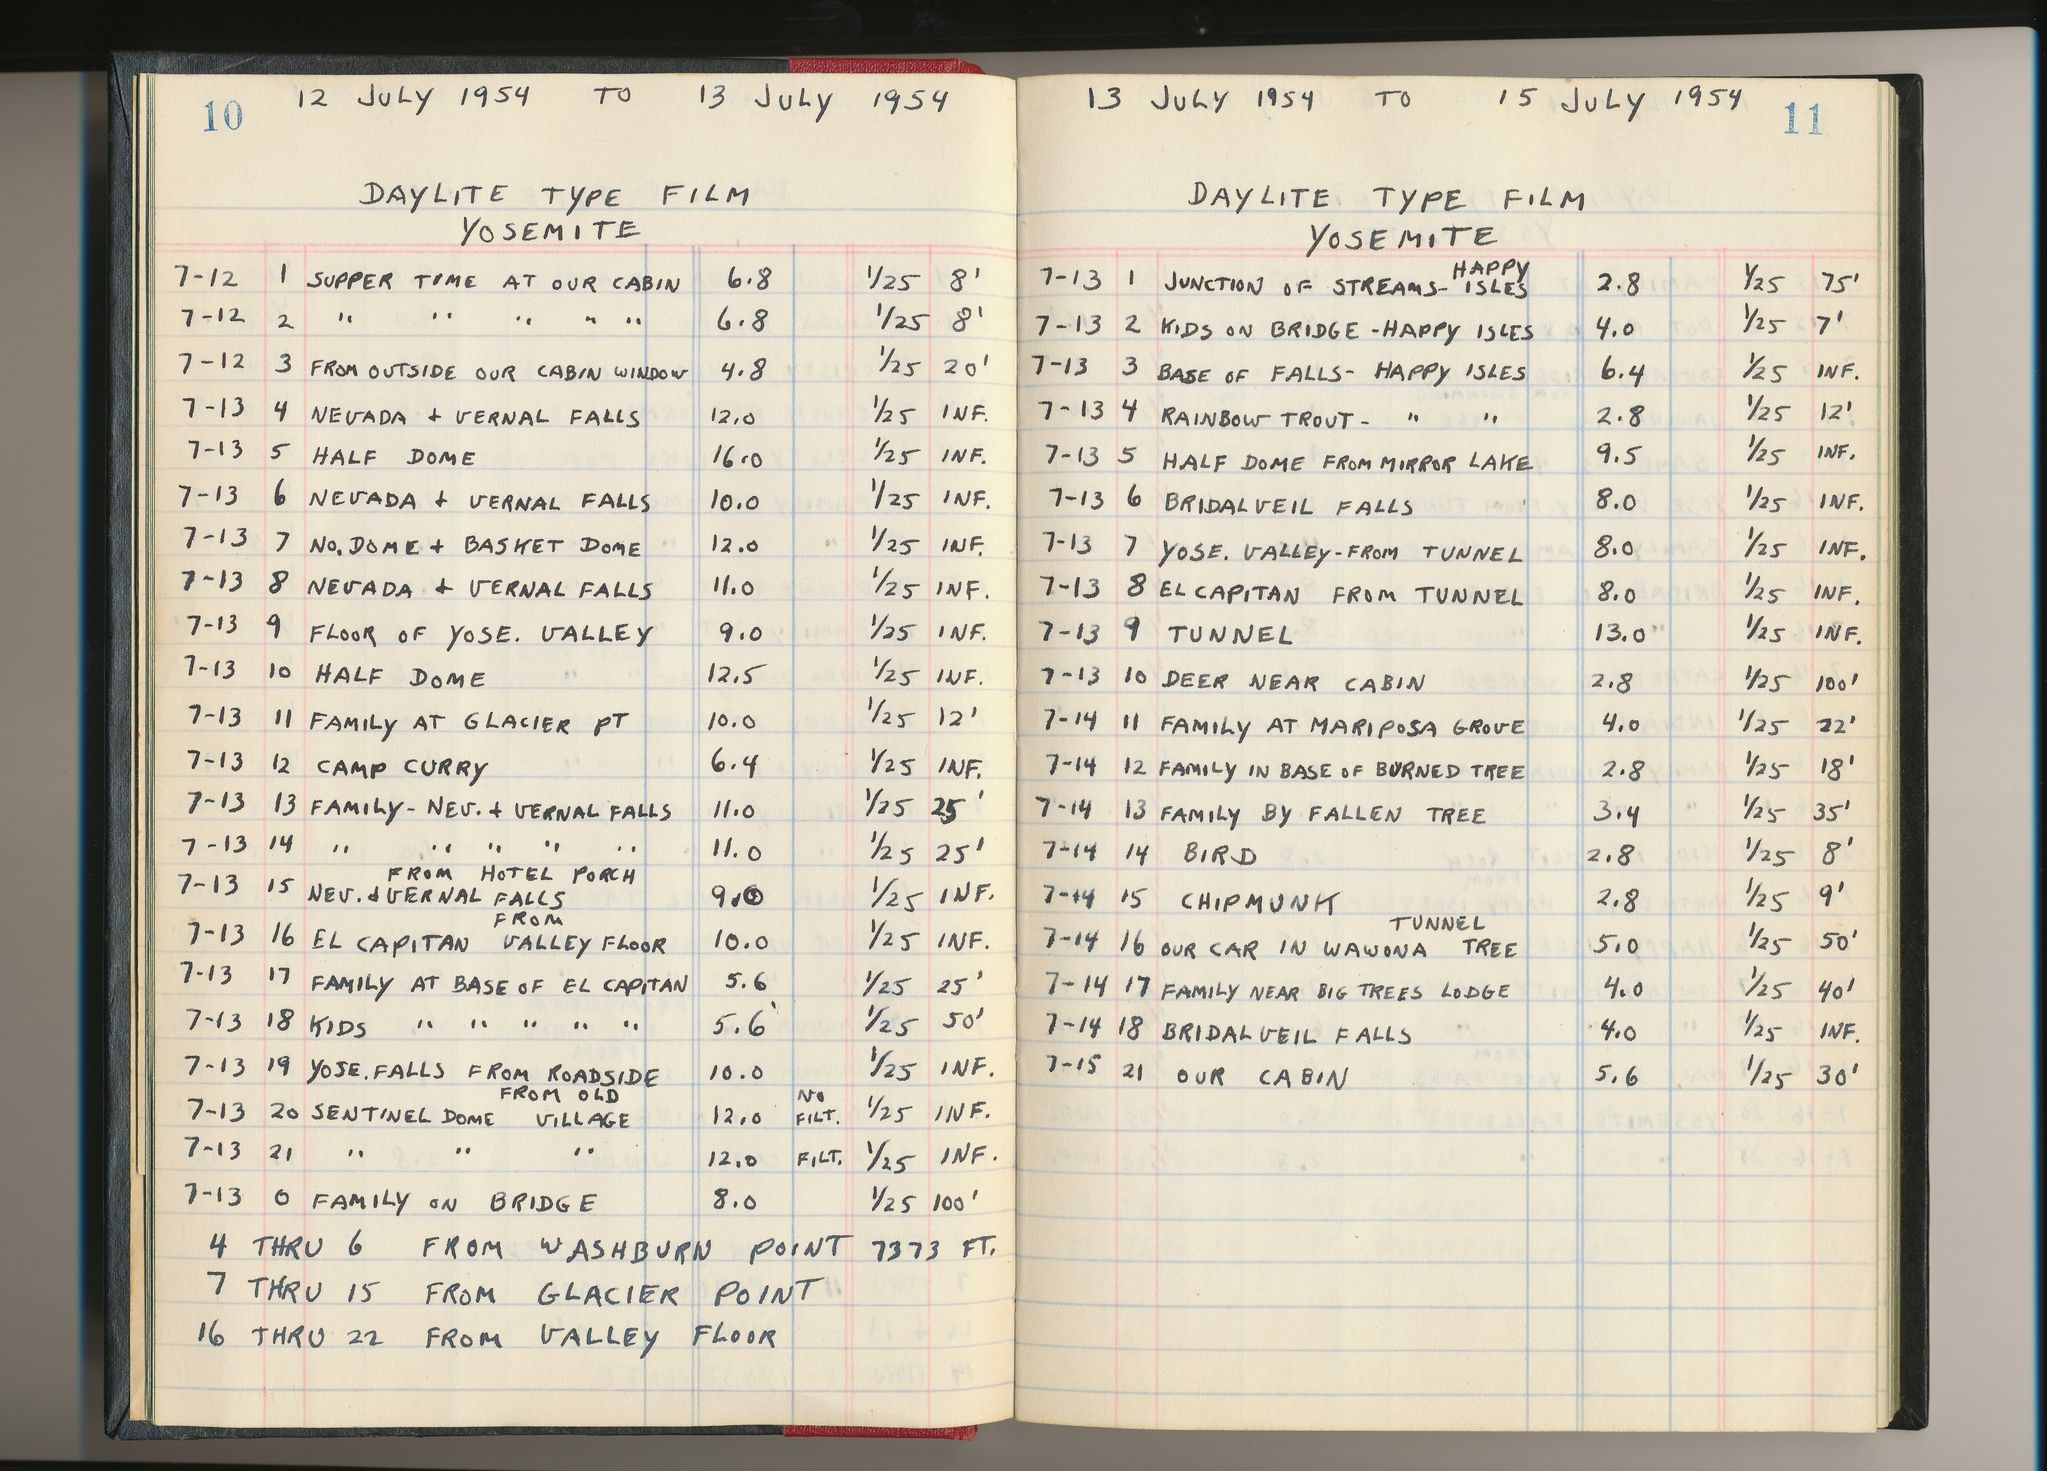 10
12 JULY 1954 TO 13 JULY 1954
DAYLITE TYPE FILM
YOSEMITE
7-12 1 SUPPER TIME AT OUR CABIN 6.8 1/25 8'
7-12 2 " " " " " 6.8 1/25 8'
7-12 3 FROM OUTSIDE OUR CABIN WINDOW 4.8 1/25 20'
7-13 4 NEVADA + VERNAL FALLS 12.0 1/25 INF.
7-13 5 HALF DOME 16.0 1/25 INF.
7-13 6 NEVADA + VERNAL FALLS 10.0 1/25 INF.
7-13 7 NO. DOME + BASKET DOME 12.0 1/25 INF.
7-13 8 NEVADA + VERNAL FALLS 11.0 1/25 INF.
7-13 9 FLOOR OF YOSE. VALLEY 9.0 1/25 INF.
7-13 10 HALF DOME 12.5 1/25 INF.
7-13 11 FAMILY AT GLACIER PT 10.0 1/25 12'
7-13 12 CAMP CURRY 6.4 1/25 INF.
7-13 13 FAMILY - NEV. + VERNAL FALLS 11.0 1/25 25'
7-13 14 " " " " " 11.0 1/25 25'
FROM HOTEL PORCH
7-13 15 NEV. + VERNAL FALLS 9.0 1/25 INF.
FROM
7-13 16 EL CAPITAN VALLEY FLOOR 10.0 1/25 INF.
7-13 17 FAMILY AT BASE OF EL CAPITAN 5.6 1/25 25'
7-13 18 KIDS " " " " " 5.6 1/25 50'
7-13 19 YOSE. FALLS FROM ROADSIDE 10.0 1/25 INF.
FROM OLD NO
7-13 20 SENTINEL DOME VILLAGE 12.0 FILT. 1/25 INF.
7-13 21 " " " 12.0 FILT. 1/25 INF.
7-13 0 FAMILY ON BRIDGE 8.0 1/25 100'
4 THRU 6 FROM WASHBURN POINT 7373 FT.
7 THRU 15 FROM GLACIER POINT
16 THRU 22 FROM VALLEY FLOOR
13 JULY 1954 TO 15 JULY 1954
11
DAYLITE TYPE FILM
YOSEMITE
HAPPY
7-13 1 JUNCTION OF STREAMS- ISLES 2.8 1/25 75'
7-13 2 KIDS ON BRIDGE - HAPPY ISLES 4.0 1/25 7'
7-13 3 BASE OF FALLS- HAPPY ISLES 6.4 1/25 INF.
7-13 4 RAINBOW TROUT - " " 2.8 1/25 12'
7-13 5 HALF DOME FROM MIRROR LAKE 9.5 1/25 INF.
7-13 6 BRIDALVEIL FALLS 8.0 1/25 INF.
7-13 7 YOSE. VALLEY - FROM TUNNEL 8.0 1/25 INF.
7-13 8 EL CAPITAN FROM TUNNEL 8.0 1/25 INF.
7-13 9 TUNNEL 13.0 1/25 INF.
7-13 10 DEER NEAR CABIN 2.8 1/25 100'
7-14 11 FAMILY AT MARIPOSA GROVE 4.0 1/25 22'
7-14 12 FAMILY IN BASE OF BURNED TREE 2.8 1/25 18'
7-14 13 FAMILY BY FALLEN TREE 3.4 1/25 35'
7-14 14 BIRD 2.8 1/25 8'
7-14 15 CHIPMUNK 2.8 1/25 9'
TUNNEL
7-14 16 OUR CAR IN WAWONA TREE 5.0 1/25 50'
7-14 17 FAMILY NEAR BIG TREES LODGE 4.0 1/25 40'
7-14 18 BRIDALVEIL FALLS 4.0 1/25 INF.
7-15 21 OUR CABIN 5.6 1/25 30'